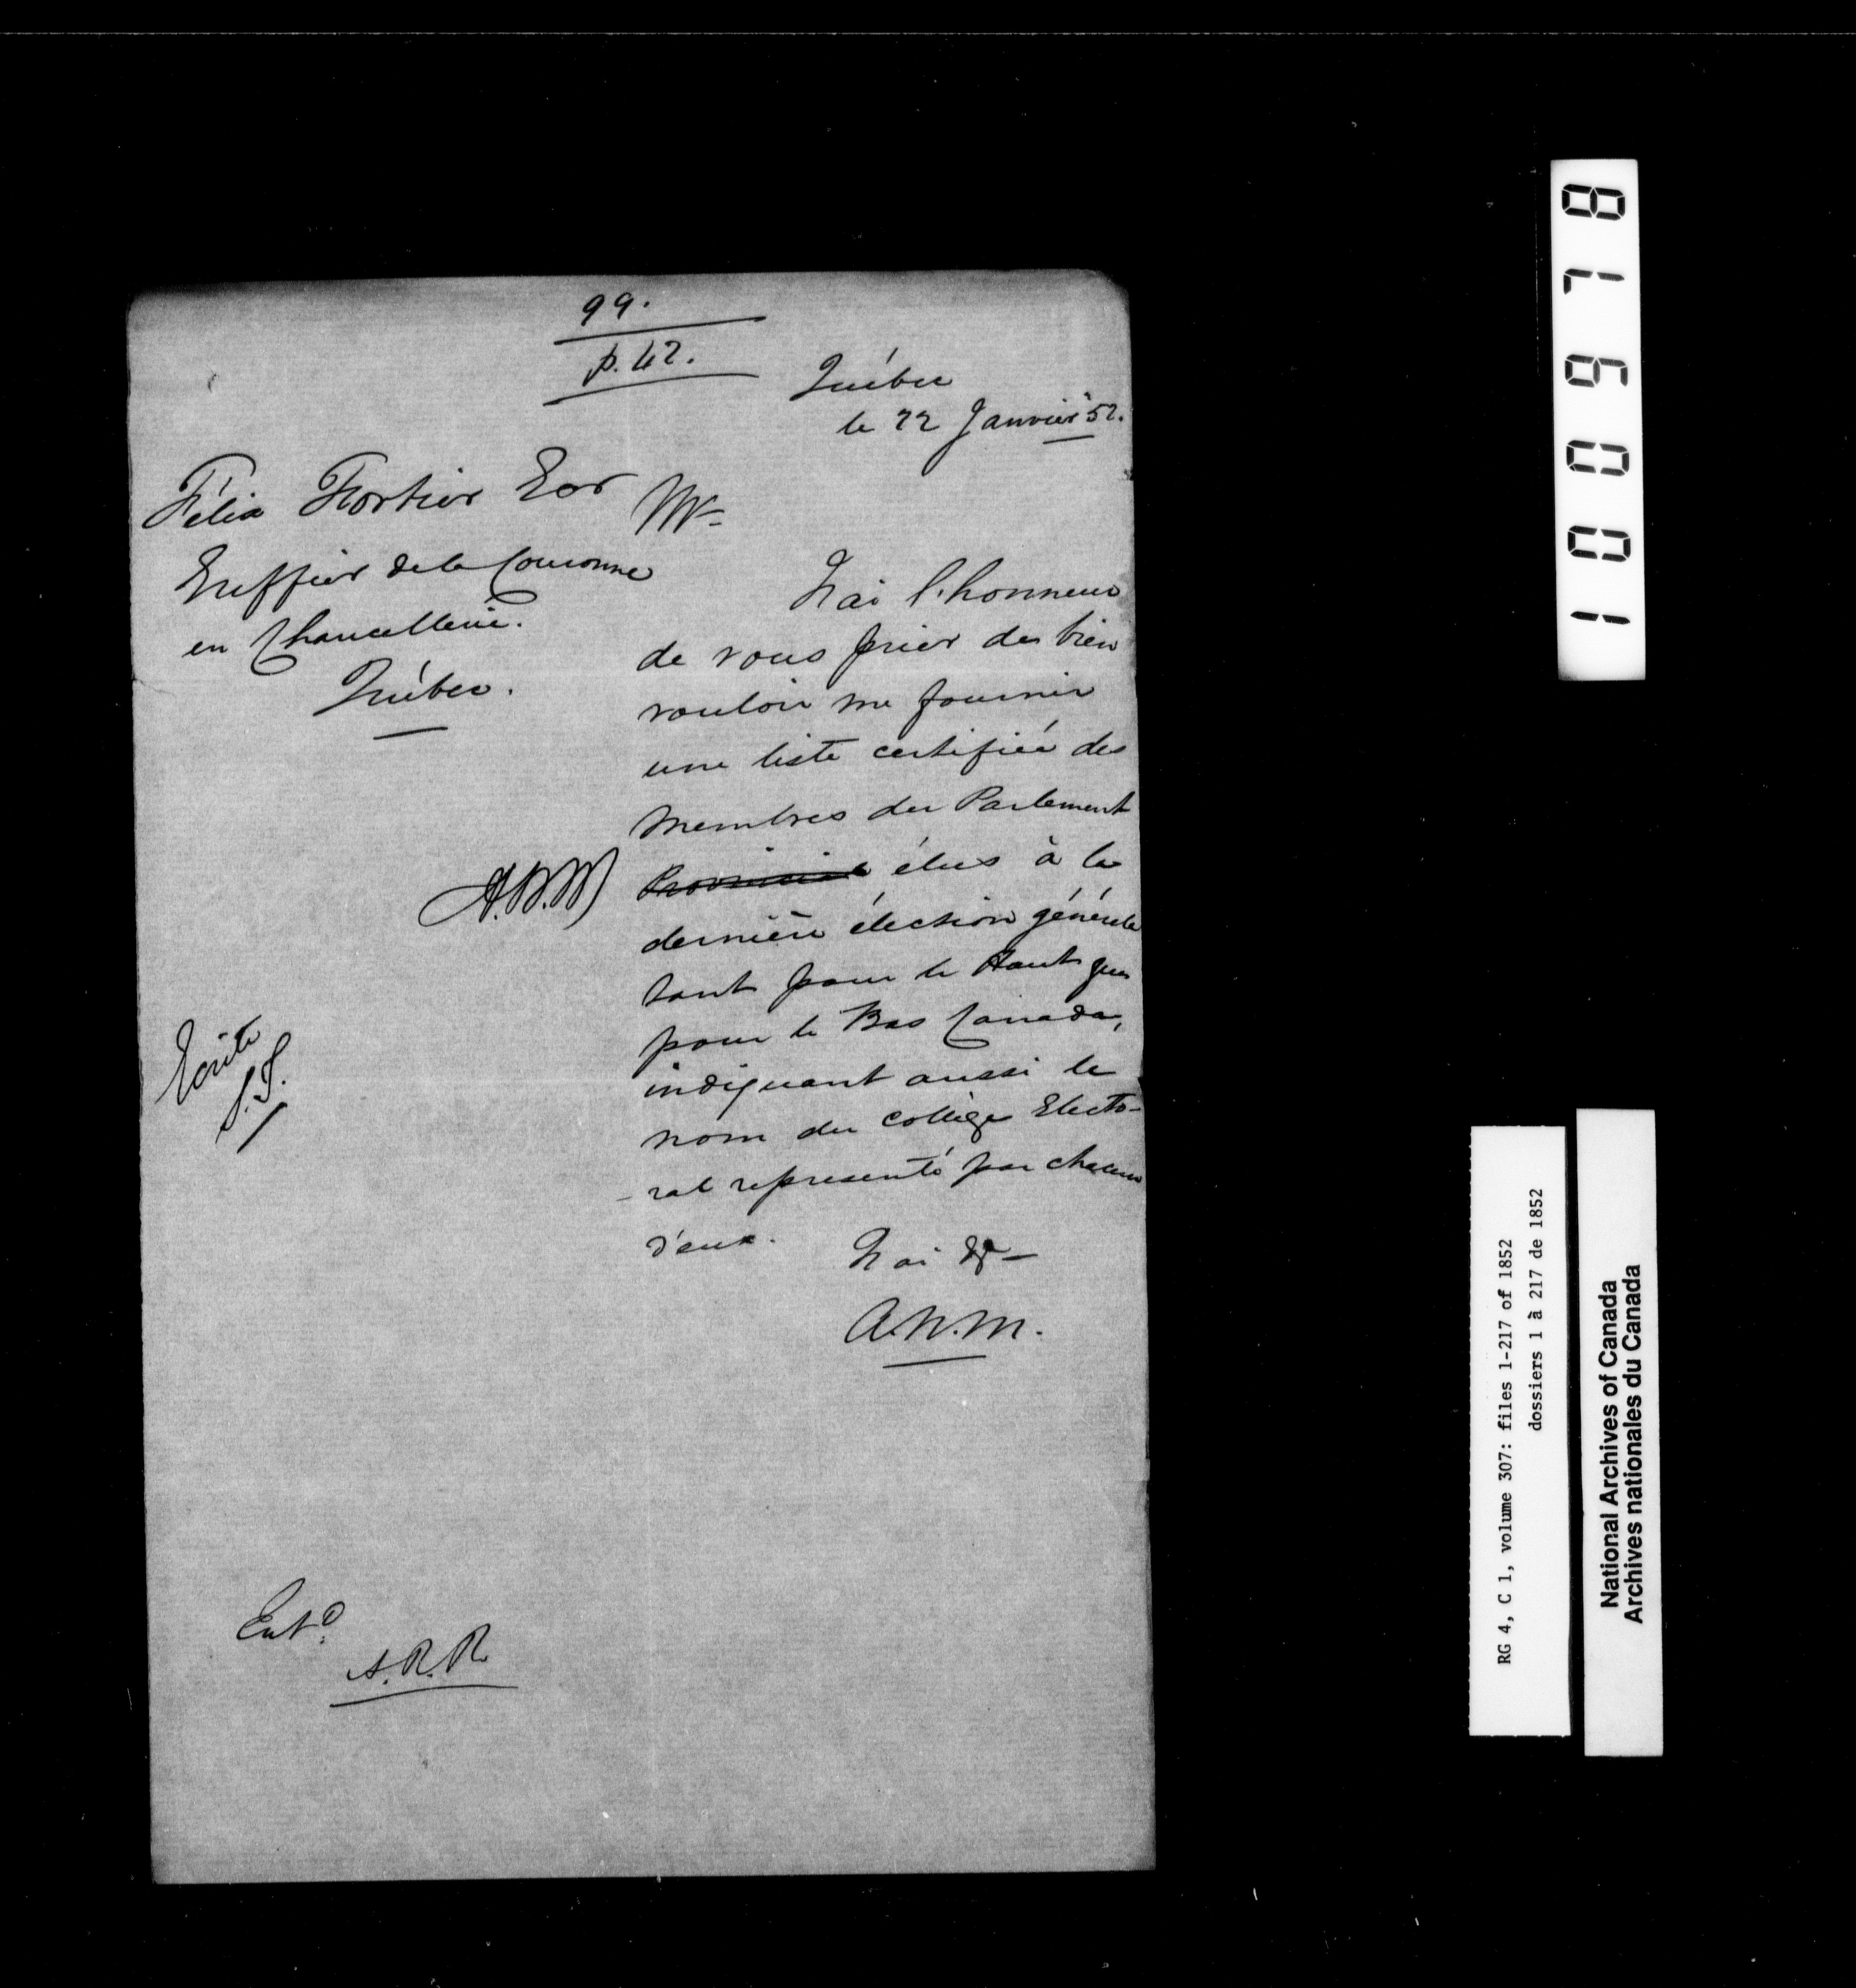 99.
p. 42.
Québec
le 22 Janvier 52.
Félix Fortier Ecr
Greffier de la Couronne
en Chancellerie.
Québec.
Mr
J'ai l'honneur
de vous prier de bien
vouloir me fournir
une liste certifiée des
Membres du Parlement
Provincial élus à la
dernière élection générale
tant pour le Haut que
pour le Bas Canada,
indiquant aussi le
nom du collège Electo-
-ral representé par chacun
d'eux.
J'ai &c
A.N.M.
A.N.M
Ecrite
Entd
A.R.R
100978
RG 4, C 1, volume 307: files 1-217 of 1852
dossiers 1 à 217 de 1852
National Archives of Canada
Archives nationales du Canada